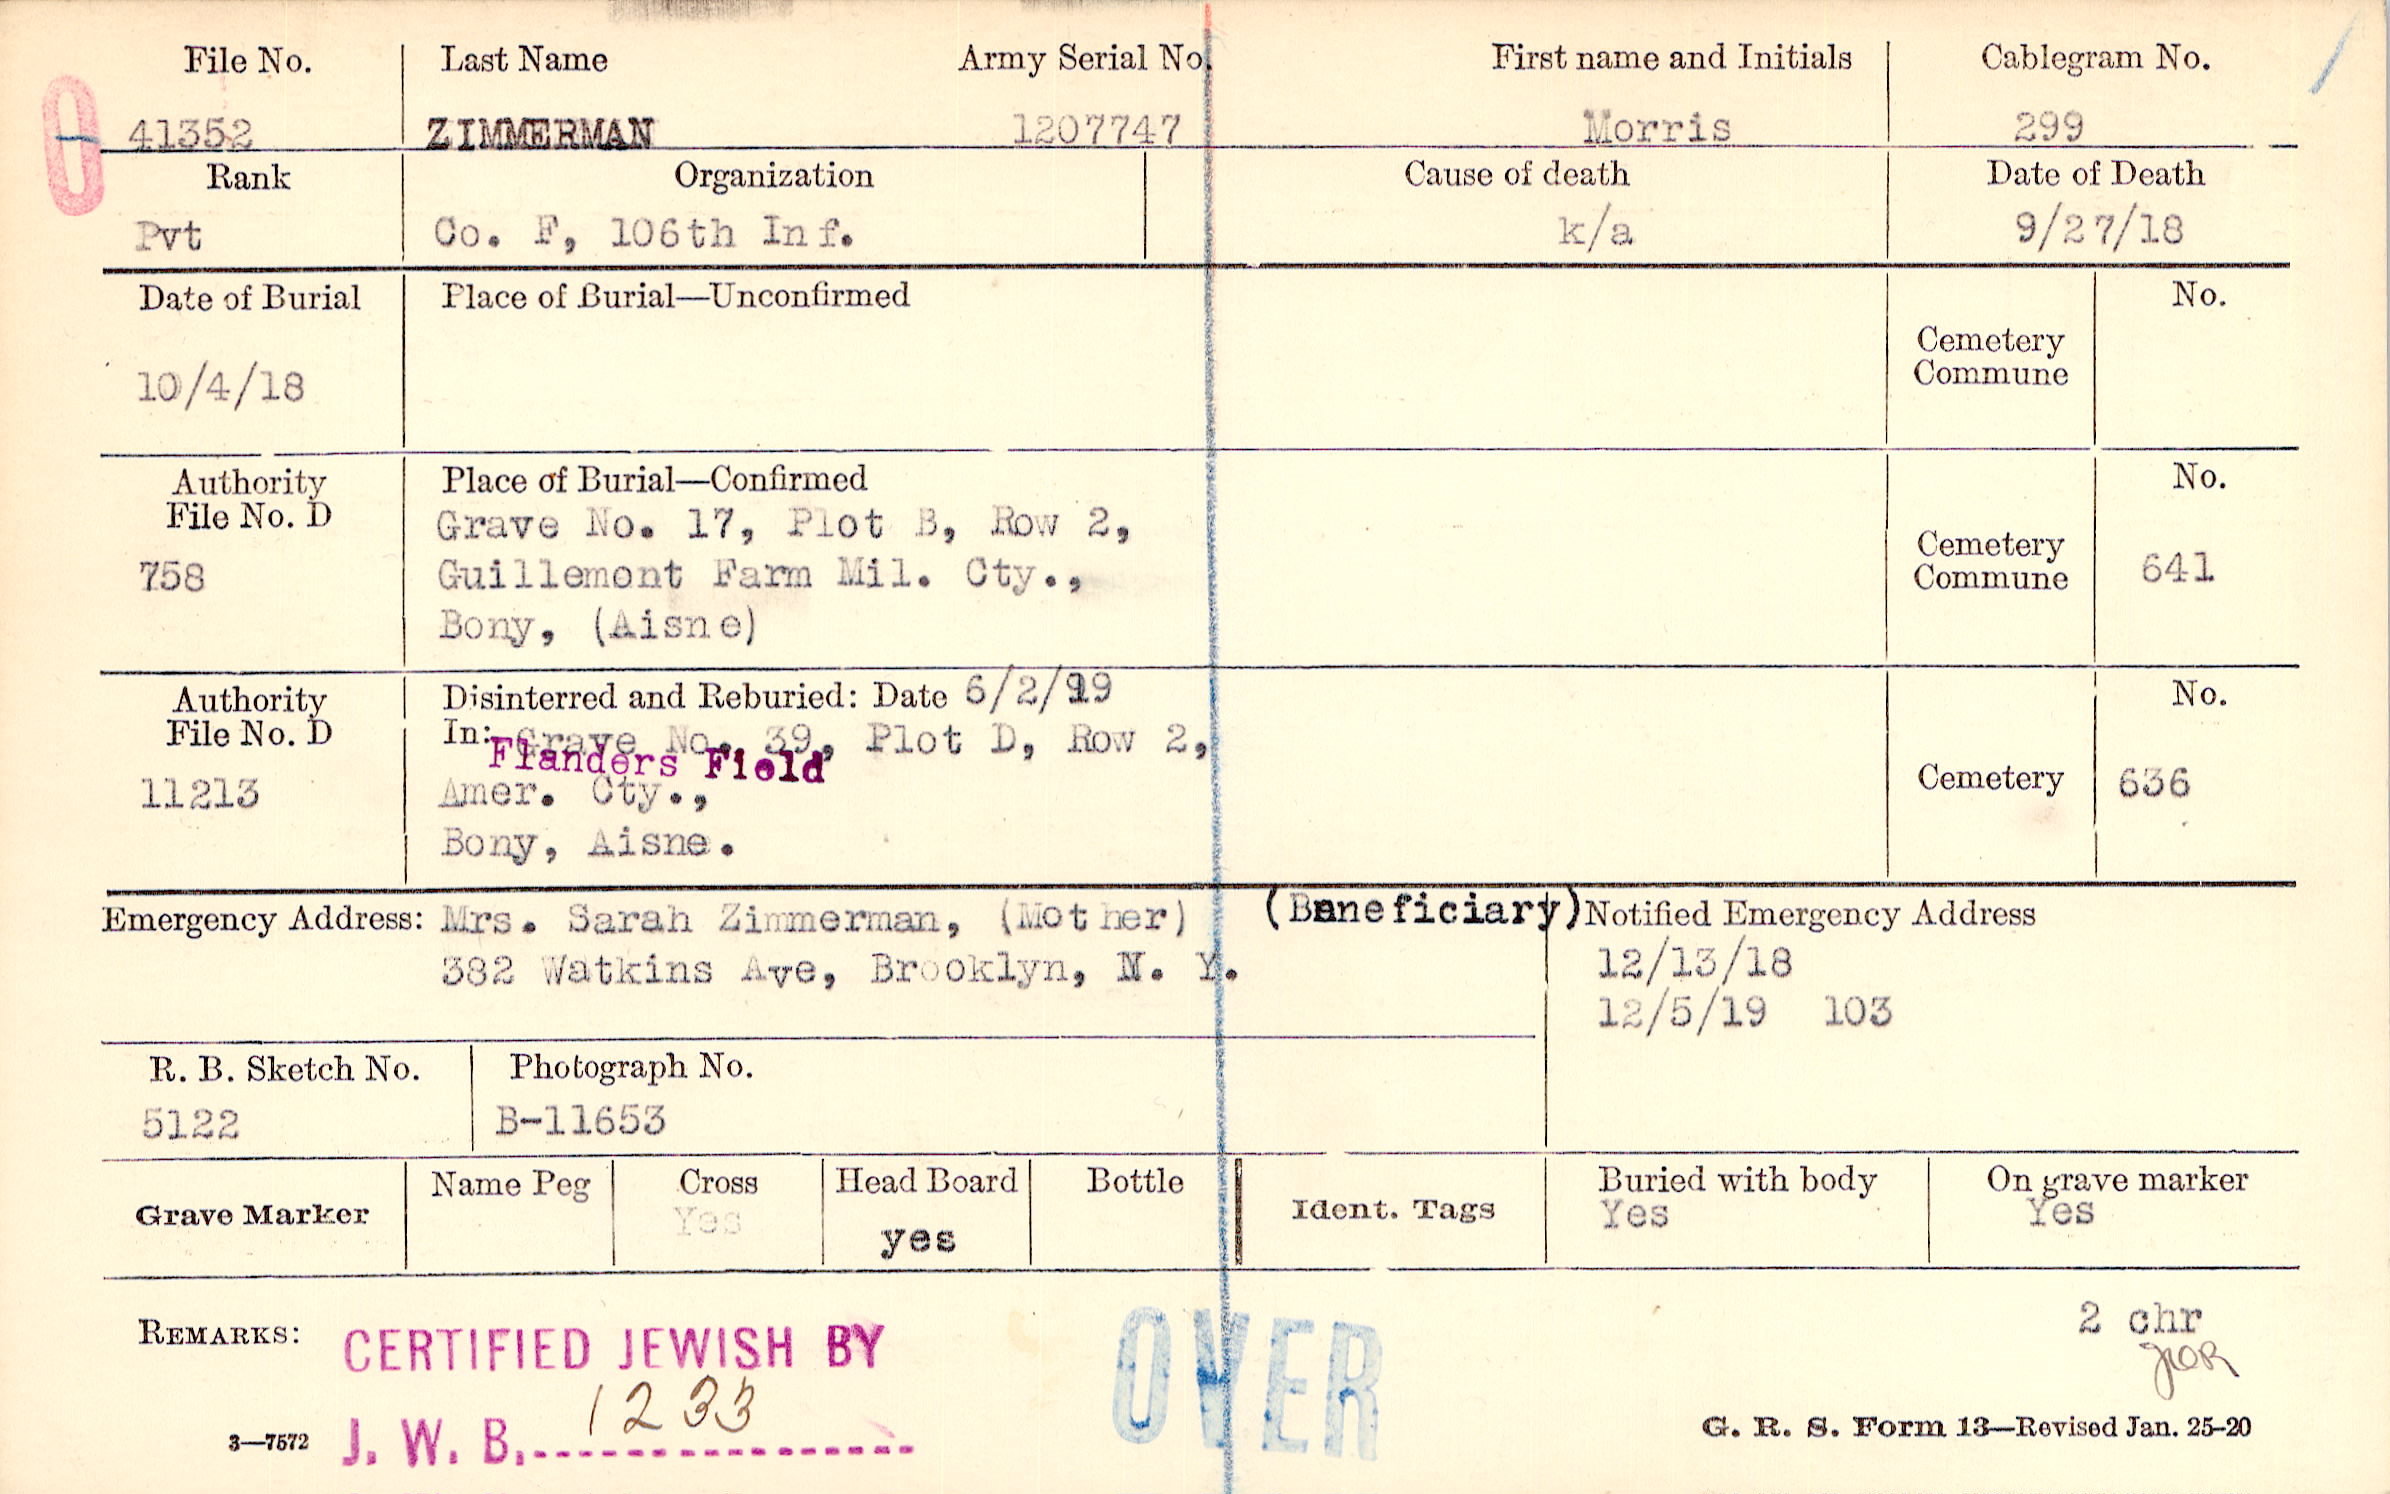 File No. Last Name Army Serial No. First name and Initials Cablegram No.
41352 ZIMMERMAN 1207747 Morris 299
Rank Organization Cause of death Date of Death
Pvt Co. F, 106th Inf. k/a 9/27/18
Date of Burial Place of Burial—Unconfirmed No.
Cemetery
Commune
10/4/18
Authority Place of Burial—Confirmed No.
File No. D Grave No. 17, Plot B, Row 2,
Cemetery
758 Guillemont Farm Mil. Cty., Commune 641
Bony, (Aisne)
Authority Disinterred and Reburied: Date 6/2/19 No.
File No. D In: Grave No. 39, Plot D, Row 2,
Flanders Field
11213 Amer. Cty., Cemetery 636
Bony, Aisne.
Emergency Address: Mrs. Sarah Zimmerman, (Mother) (Beneficiary) Notified Emergency Address
382 Watkins Ave, Brooklyn, N. Y. 12/13/18
12/5/19 103
R. B. Sketch No. Photograph No.
5122 B-11653
Grave Marker Name Peg Cross Head Board Bottle Ident. Tags Buried with body On grave marker
Yes yes Yes Yes
REMARKS: CERTIFIED JEWISH BY OVER 2 chr
1233
J. W. B.
3—7572 G. R. S. Form 13—Revised Jan. 25-20